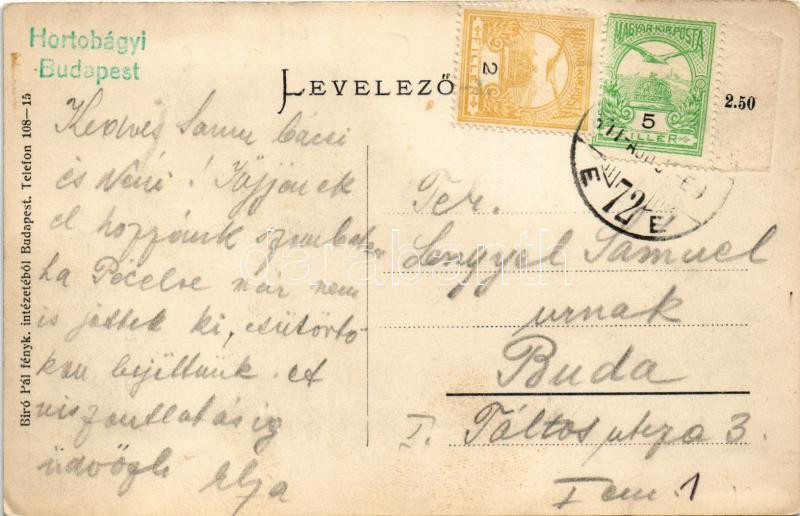 Hortobágyi
Budapest
LEVELEZŐ
MAGYAR KIR. POSTA
2
FILLÉR
MAGYAR KIR. POSTA
5
FILLÉR
2.50
72
E
E
Biró Pál fényk. intézetéből Budapest. Telefon 108—15
Kedves Samu bácsi
és Néni! Jöjjenek
el hozzánk szombaton
ha Pécelre már nem
is jöttek ki, csütörtö
kön bejöttünk. A
viszontlátásig
üdvözli
Elza
Ter.
Lengyel Samuel
urnak
Buda
I. Táltos utcza 3.
I em. 1
darabanth